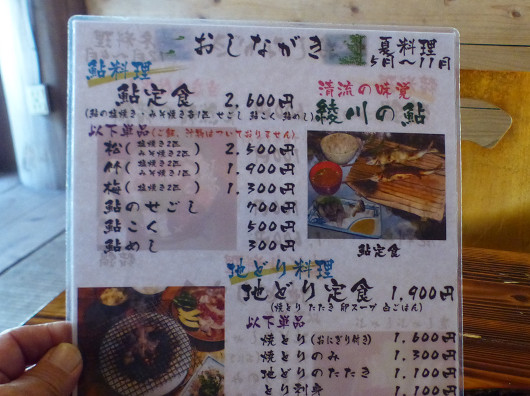 おしながき
夏料理
5月〜11月
鮎料理
鮎定食 2,600円
(鮎の塩焼き・みそ焼き各1匹 せごし 鮎こく 鮎めし)
以下単品(ご飯、汁類はついておりません)
松(塩焼き2匹 みそ焼き2匹) 2,500円
竹(塩焼き2匹 みそ焼き1匹) 1,900円
梅(塩焼き1匹 みそ焼き1匹) 1,300円
鮎のせごし 700円
鮎こく 500円
鮎めし 300円
清流の味覚
綾川の鮎
鮎定食
地どり料理
地どり定食 1,900円
(焼とり たたき 卵スープ 白ごはん)
以下単品
焼とり(おにぎり付き) 1,600円
焼とりのみ 1,300円
地どりのたたき 1,100円
とり刺身 1,100円